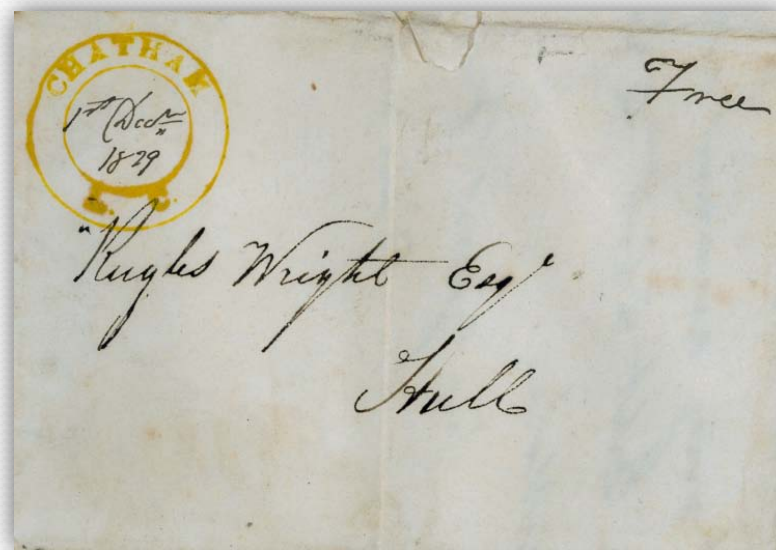 CHATHAM
1st Decr
1829
Free
"Rugles Wright Esqr
Hull